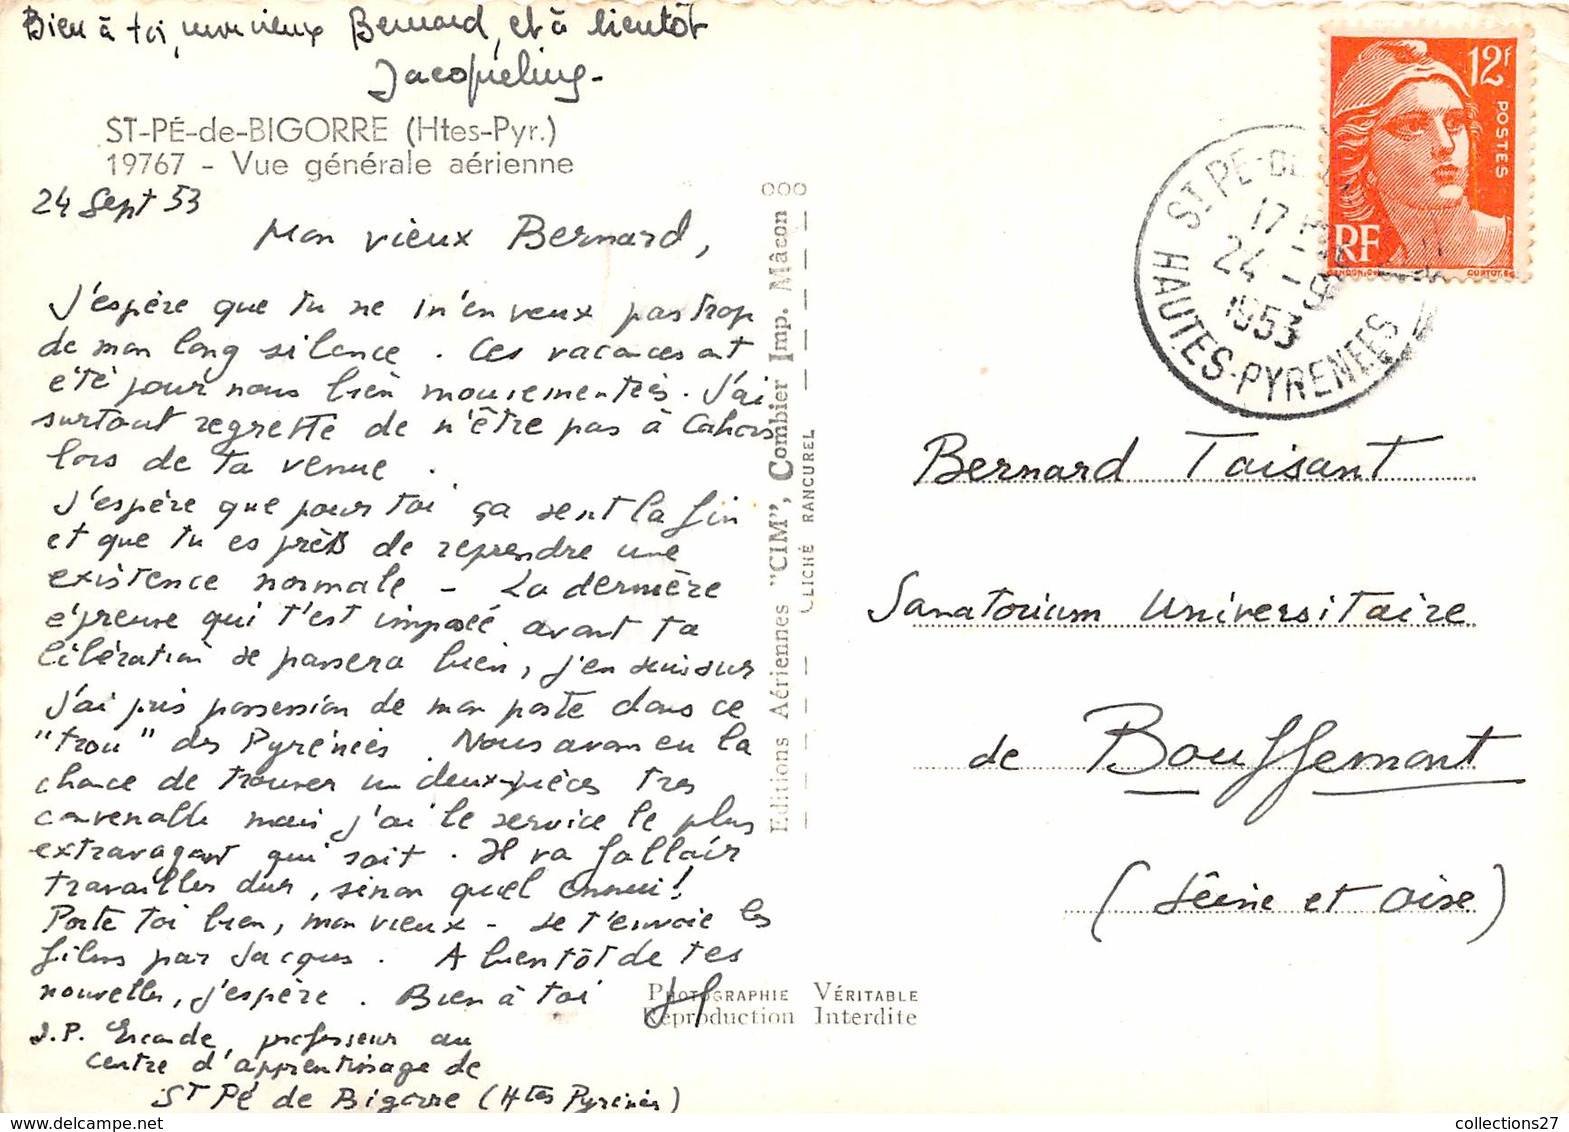 Bien à toi, mon vieux Bernard, et à bientôt
Jacqueline
ST-PÉ-de-BIGORRE (Htes-Pyr.)
19767 - Vue générale aérienne
24 Sept 53
Mon vieux Bernard,
J'espère que tu ne m'en veux pas trop
de mon long silence. Ces vacances ont
été pour nous bien mouvementées. J'ai
surtout regretté de n'être pas à Cahors
lors de ta venue.
J'espère que pour toi ça sent la fin
et que tu es près de reprendre une
existence normale - La dernière
épreuve qui t'est imposée avant ta
libération se passera bien, j'en suis sur
J'ai pris possession de mon poste dans ce
"trou" des Pyrénées. Nous avons eu la
chance de trouver un deux-pièces tres
convenable mais j'ai le service le plus
extravagant qui soit. Il va falloir
travailler dur, sinon quel ennui!
Porte toi bien, mon vieux - Je t'envoie les
films par Jacques. A bientôt de tes
nouvelles, j'espère. Bien à toi
J.P. Escande, professeur au
centre d'apprentissage de
St Pé de Bigorre (Htes Pyrénées)
Editions Aériennes "CIM", Combier Imp. Mâcon
CLICHÉ RANCUREL
PHOTOGRAPHIE VÉRITABLE
Reproduction Interdite
12f
POSTES
RF
GANDON.
CORTOT.SC
ST PE-DE
17
24 -9
1953
HAUTES-PYRENEES
Bernard Taisant
Sanatorium Universitaire
de Bouffemont
(Seine et Oise)
collections27